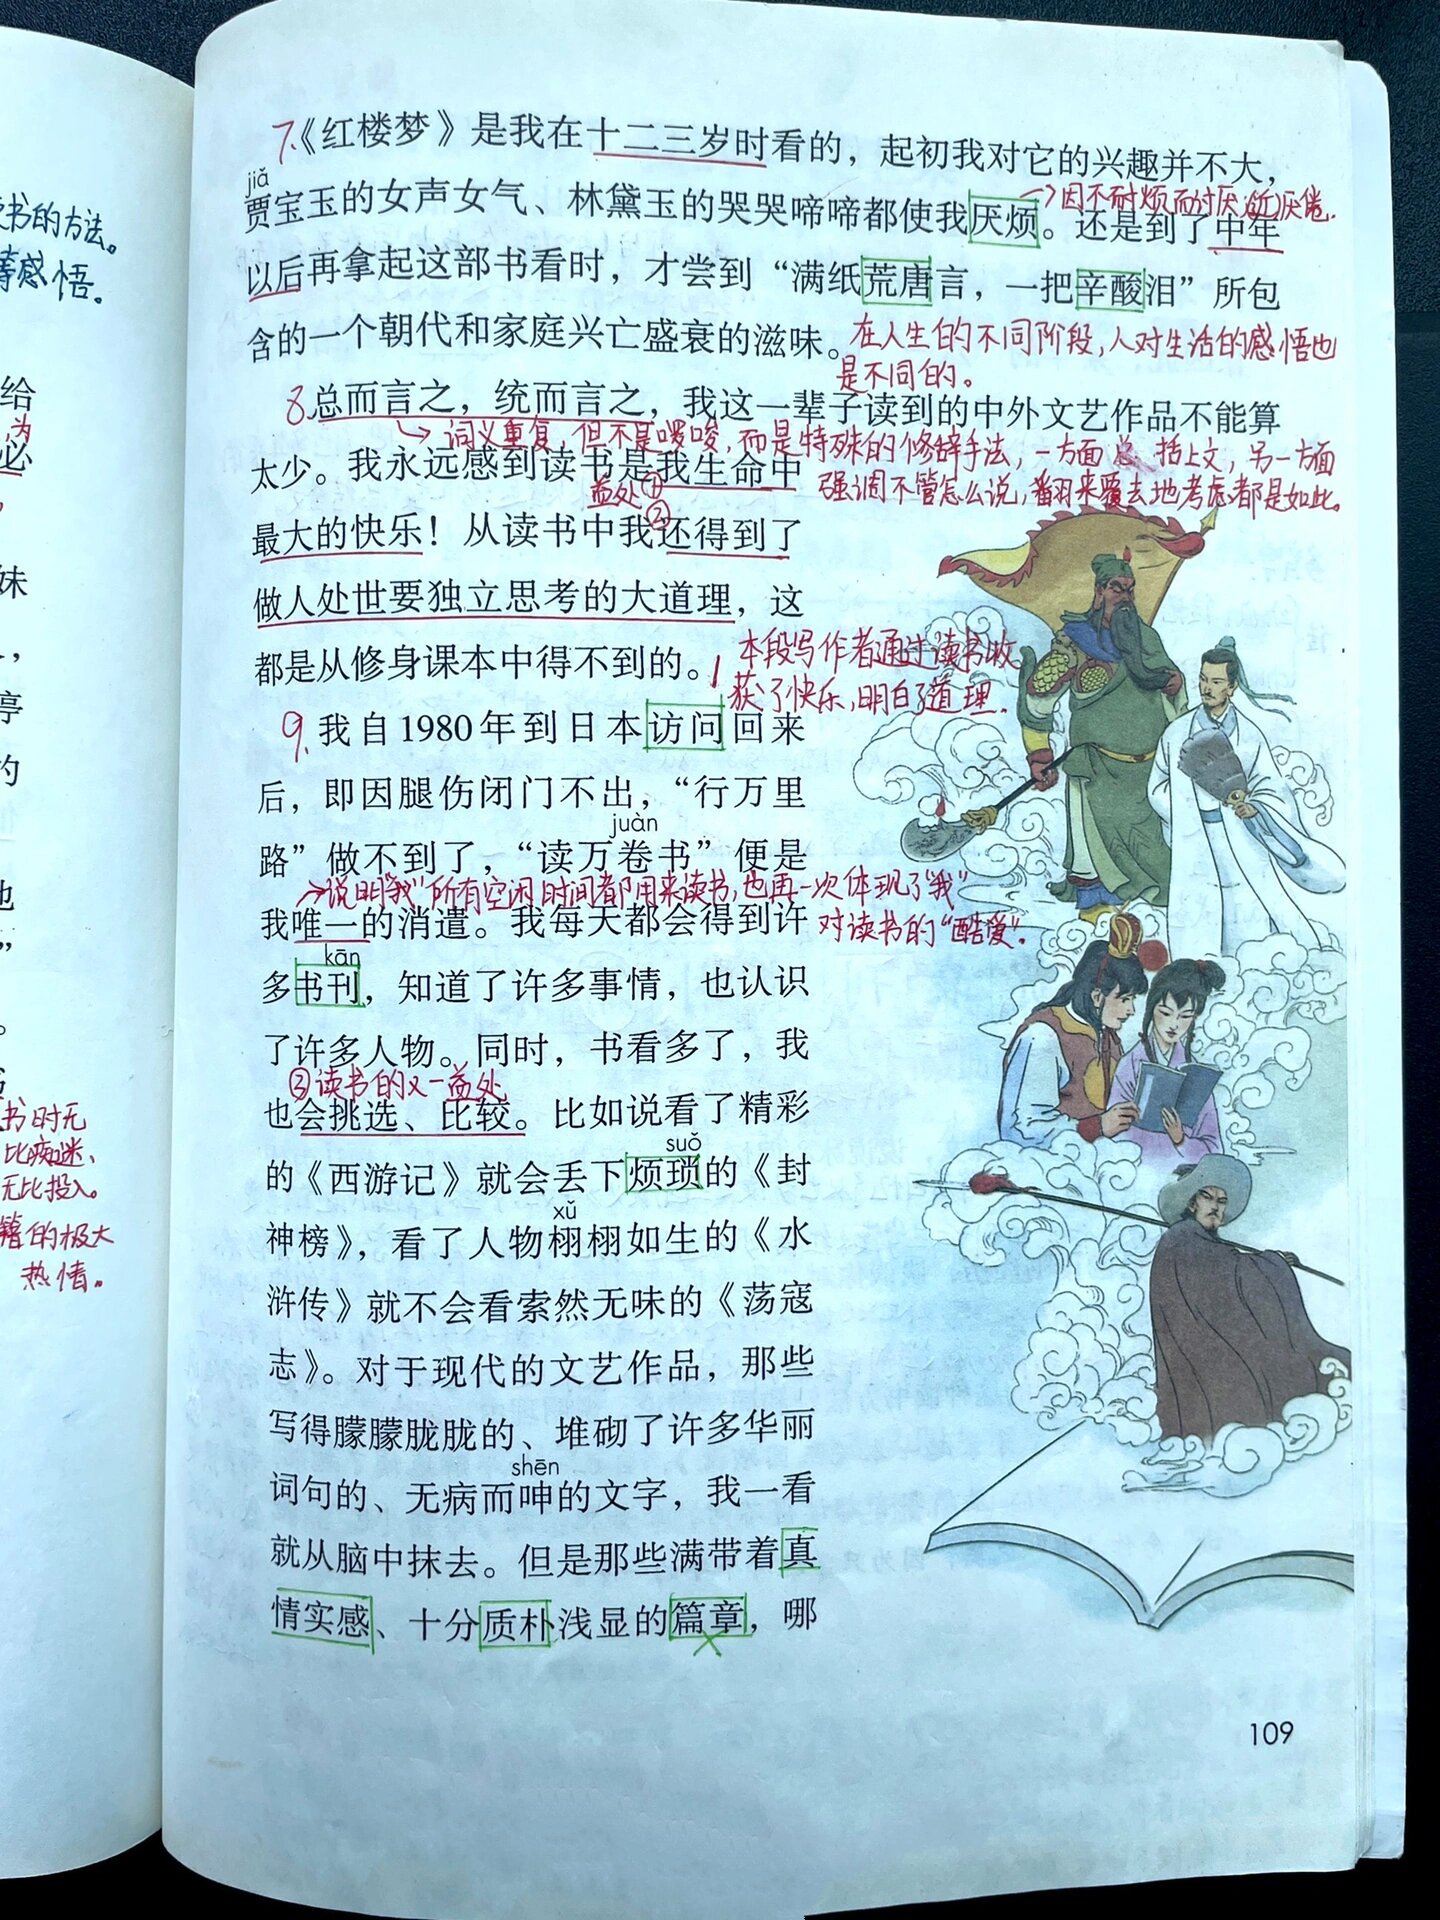 书的方法。
等感悟。
给
为
必
妹
停
约
地
书时无
比痴迷、
无比投入。
籍的极大
热情。
7.《红楼梦》是我在十二三岁时看的，起初我对它的兴趣并不大，
jiǎ
→因不耐烦而讨厌.近厌倦.
贾宝玉的女声女气、林黛玉的哭哭啼啼都使我厌烦。还是到了中年
以后再拿起这部书看时，才尝到“满纸荒唐言，一把辛酸泪”所包
含的一个朝代和家庭兴亡盛衰的滋味。在人生的不同阶段，人对生活的感悟也
是不同的。
8.总而言之，统而言之，我这一辈子读到的中外文艺作品不能算
→词义重复，但不是啰唆，而是特殊的修辞手法，一方面总括上文，另一方面
太少。我永远感到读书是我生命中
强调不管怎么说，翻来覆去地考虑都是如此。
益处① ②
最大的快乐！从读书中我还得到了
做人处世要独立思考的大道理，这
都是从修身课本中得不到的。
本段写作者通过读书收
获了快乐，明白了道理.
9.我自1980年到日本访问回来
后，即因腿伤闭门不出，“行万里
juàn
路”做不到了，“读万卷书”便是
→说明“我”所有空闲时间都用来读书，也再一次体现了“我”
对读书的“酷爱”.
我唯一的消遣。我每天都会得到许
kān
多书刊，知道了许多事情，也认识
了许多人物。同时，书看多了，我
③读书的又一益处
也会挑选、比较。比如说看了精彩
suǒ
的《西游记》就会丢下烦琐的《封
xǔ
神榜》，看了人物栩栩如生的《水
浒传》就不会看索然无味的《荡寇
志》。对于现代的文艺作品，那些
写得朦朦胧胧的、堆砌了许多华丽
shēn
词句的、无病而呻的文字，我一看
就从脑中抹去。但是那些满带着真
情实感、十分质朴浅显的篇章，哪
109